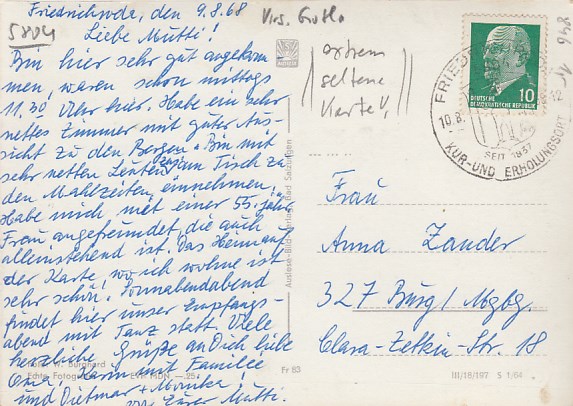 Friedrichroda, den 9.8.68
Liebe Mutti!
5804
Bin hier sehr gut angekom
men, waren schon mittags
11.30 Uhr hier. Habe ein sehr
nettes Zimmer mit guter Aus-
sicht zu den Bergen. Bin mit
sehr netten Leuten zum Tisch zu
den Mahlzeiten einnehmen.
Habe mich mit einer 55 jähr.
Frau angefreundet, die auch
alleinstehend ist. Das Heim auf
der Karte, wo ich wohne ist
sehr schön. Sonnabendabend
findet hier unser Empfangs-
abend mit Tanz statt. Viele
herzliche Grüße an Dich liebe
Oma, Karin mit Familie
und Dietmar + Monika!
von Eurer Mutti.
W. Burghard
Echte Fotogr
EVP MDN -.25
Fr 83
Auslese-Bild-Verlag, Bad Salzungen
Krs. Gotha
extrem
seltene
Karte!!
DEUTSCHE
DEMOKRATISCHE REPUBLIK
10
FRIED
10.8.
SEIT 1837
KUR- UND ERHOLUNGSORT
Frau
Anna Zander
327 Burg / Mgbg.
Clara-Zetkin-Str. 18
III/18/197 S 1/64